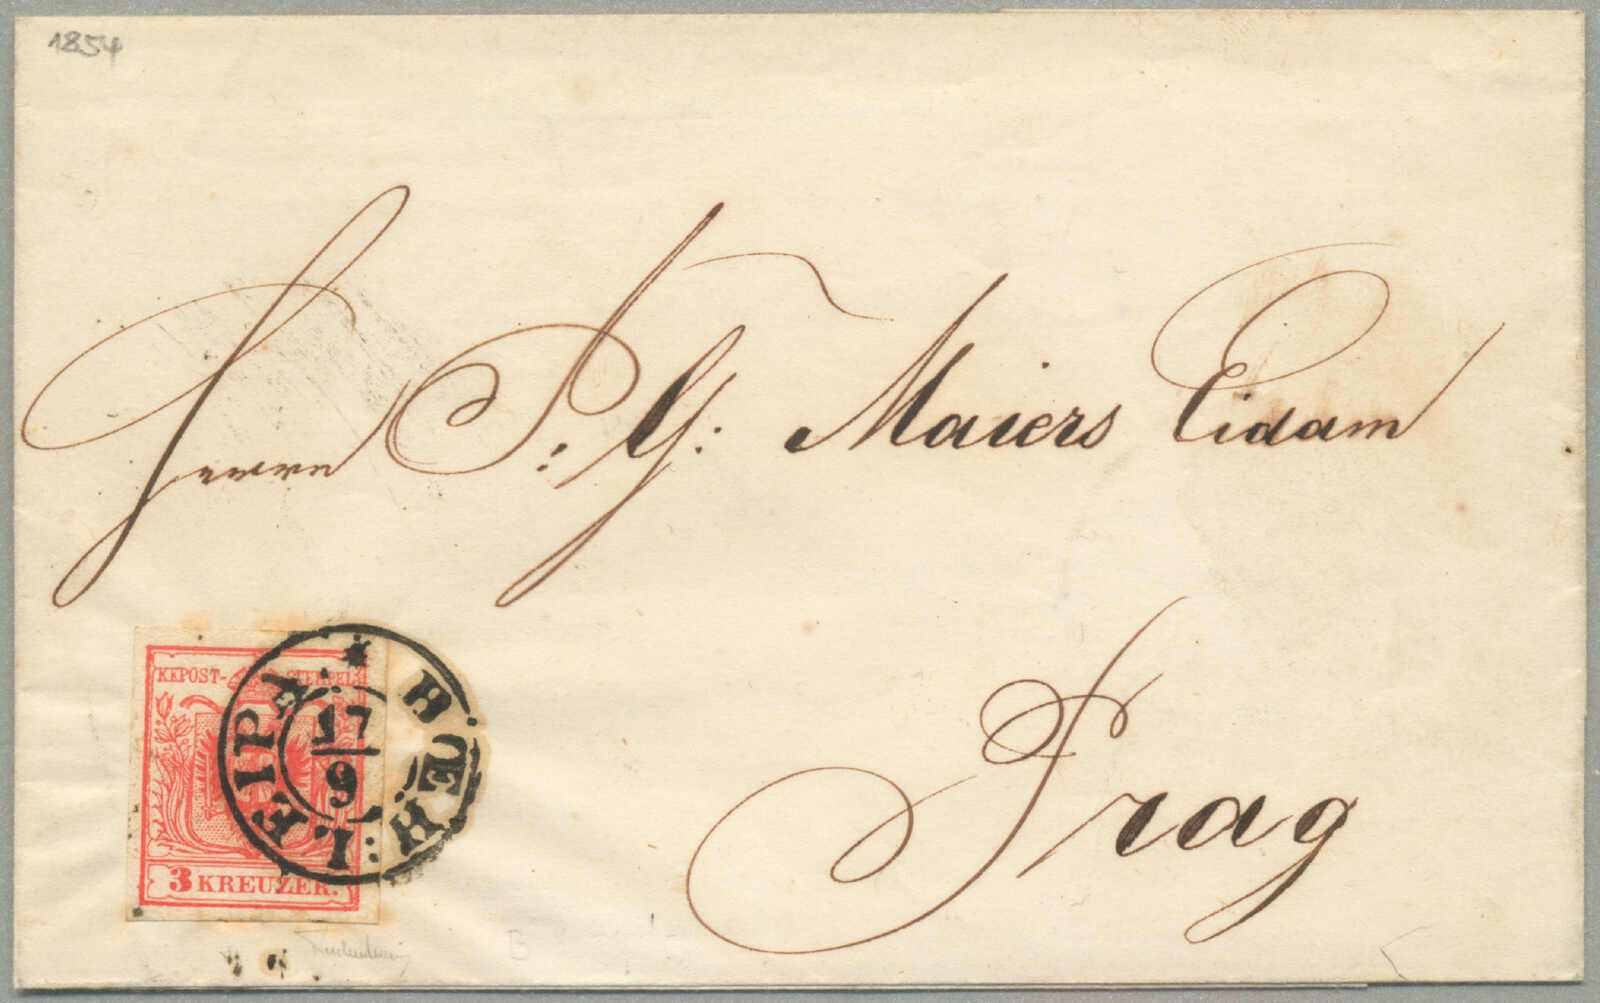 1854
Herrn S: G: Maiers Eidam
Prag
KKPOST-STEMPEL
3 KREUZER.
BŒH: LEIPA
17
9
B